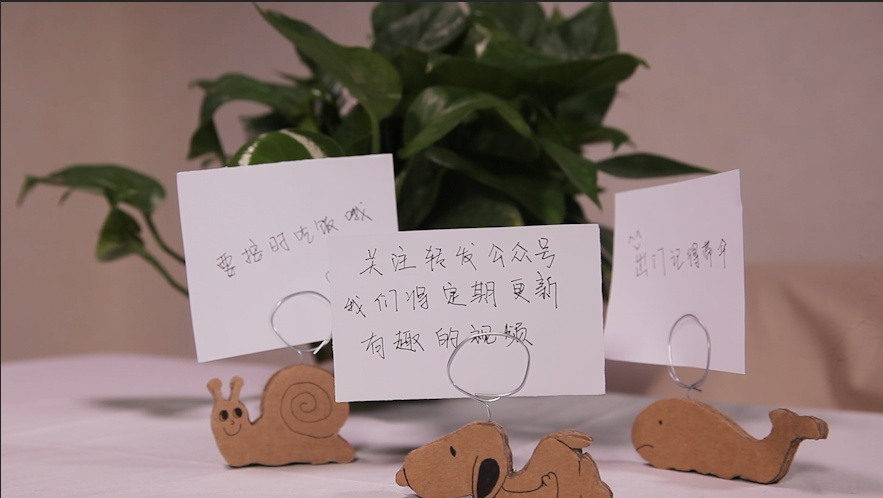 要按时吃饭哦
关注转发公众号
我们将定期更新
有趣的视频
出门记得带伞